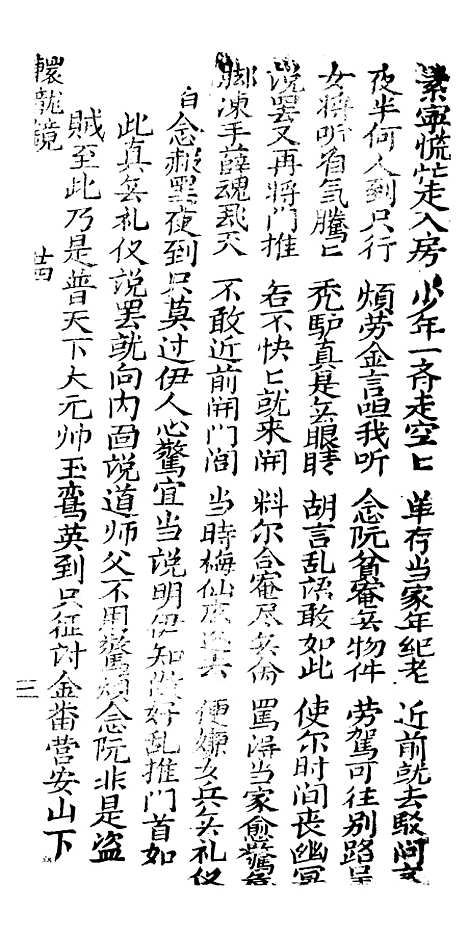 素寧慌忙走入房 少年一斉走空匕 单存当家年纪老 近前就去駁问
夜半何人到只行 煩劳金言呾我听 念阮貧菴无物件 劳駕可往别路呈
女将听着气騰匕 秃馿真是无眼睛 胡言乱语敢如此 使尔时间丧幽冥
说罢又再将门推 若不快匕就来開 料尔合菴尽无份 罵得当家愈驚
脚凍手薛魂飛天 不敢近前開门闾 当時梅仙 便嫌女兵无礼仪
自念赧黑夜到只莫过伊人心驚宜当说明伊知好乱推门首如
此真无礼仪说罢就向内面说道师父不用驚煩念阮非是盗
贼至此乃是普天下大元帅玉鸾英到只征討金番营安山下
龍镜 廿四 三